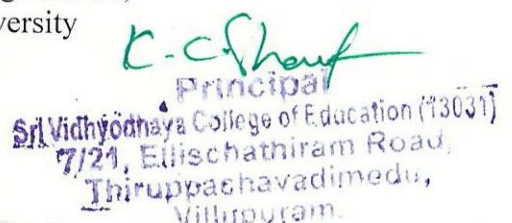 versity
Principal
Sri Vidhyodhaya College of Education (13031)
7/21, Ellischathiram Road,
Thiruppachavadimedu,
Villupuram.